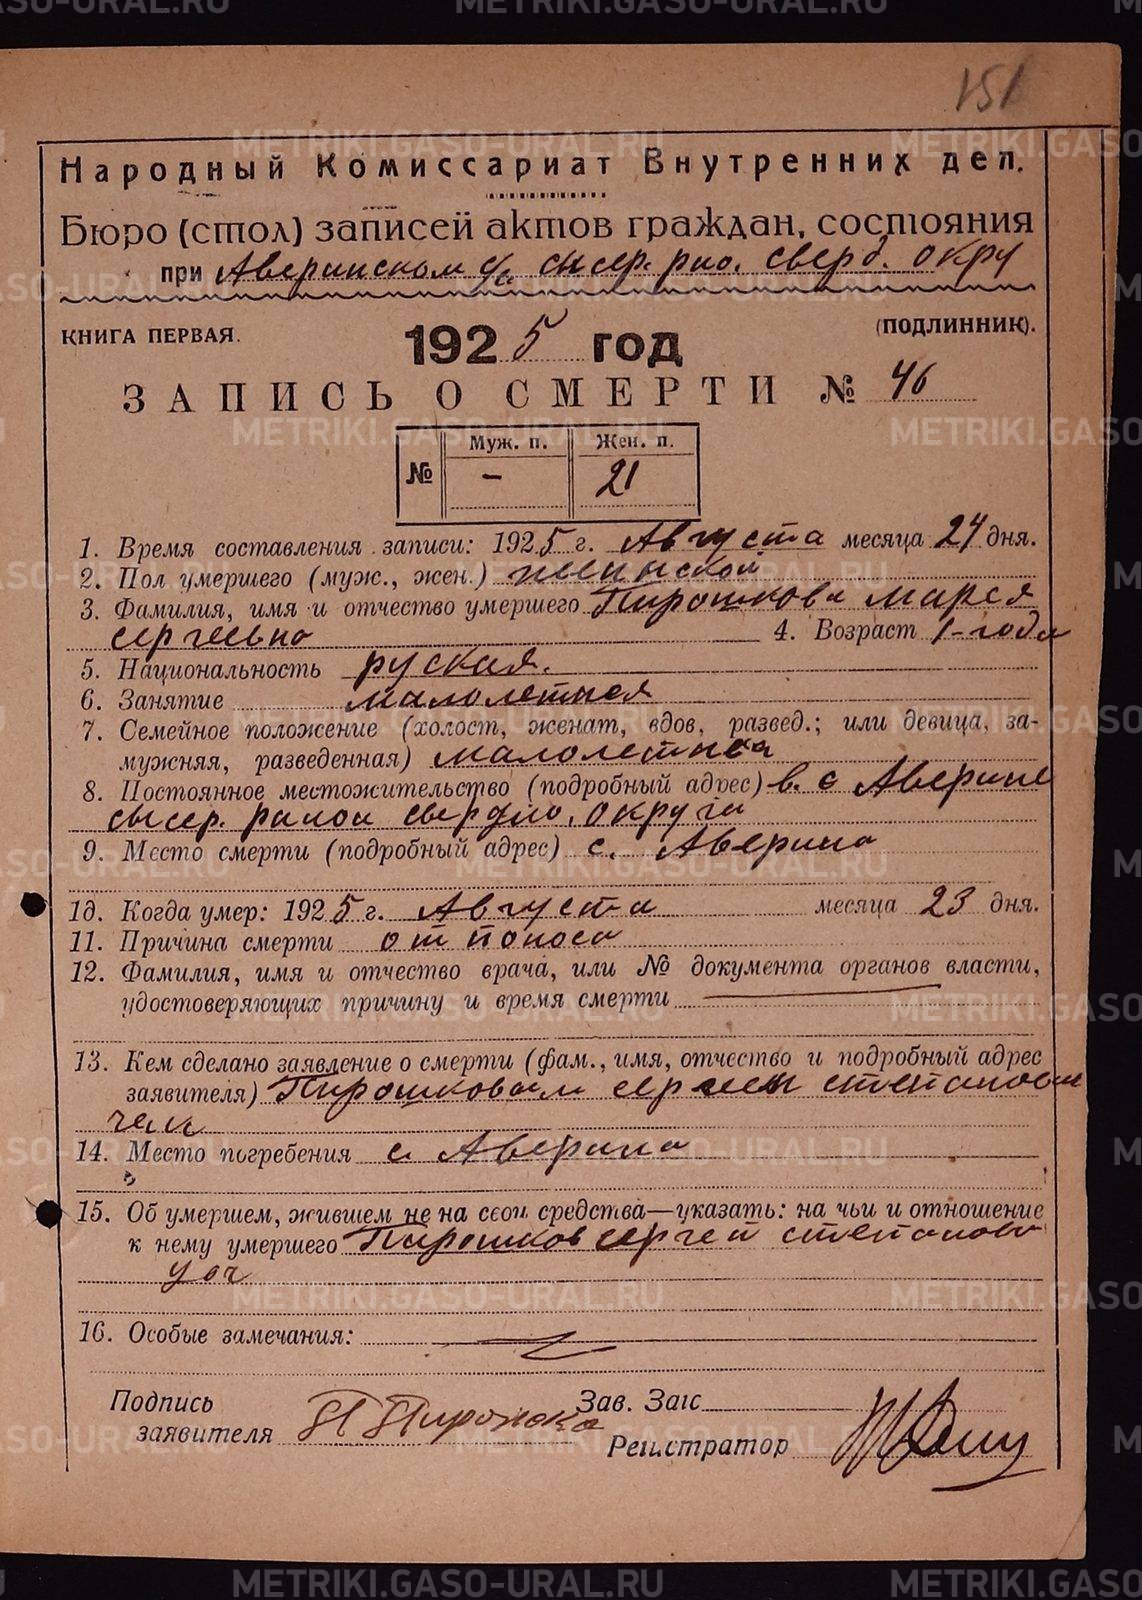 151
Народный Комиссариат Внутренних дел.
Бюро (стол) записей актов граждан. состояния
при Аверинском с/с. сысер. рио. сверд. окру
КНИГА ПЕРВАЯ. 1925 год (ПОДЛИННИК).
ЗАПИСЬ О СМЕРТИ № 46
Муж. п. Жен. п.
№ – 21
1. Время составления записи: 1925 г. Августа месяца 24 дня.
2. Пол умершего (муж., жен.) женской
3. Фамилия, имя и отчество умершего Пирошкова Мария
сергевна 4. Возраст 1-года
5. Национальность руская.
6. Занятие малолетная
7. Семейное положение (холост, женат, вдов, развед.; или девица, за-
мужняя, разведенная) малолетная
8. Постоянное местожительство (подробный адрес) в. с Аверине
сысер. раиои свердло. округа
9. Место смерти (подробный адрес) с. Аверино
10. Когда умер: 1925 г. Августа месяца 23 дня.
11. Причина смерти от поноса
12. Фамилия, имя и отчество врача, или № документа органов власти,
удостоверяющих причину и время смерти
13. Кем сделано заявление о смерти (фам., имя, отчество и подробный адрес
заявителя) Пирошковам степанови
чем
14. Место погребения с. Аверино
15. Об умершем, жившем не на свои средства—указать: на чьи и отношение
к нему умершего Пирошков сергей степанови
16. Особые замечания:
Подпись Зав. Загс
заявителя
Регистратор
METRIKI.GASO-URAL.RU